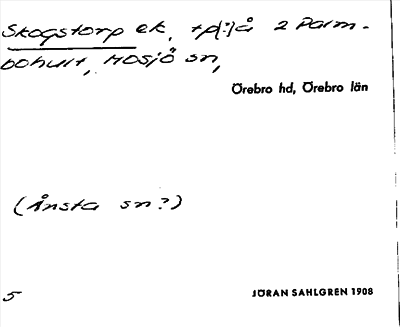 Skogstorp ek, tp[:]å 2 Palm-
bohult, Mosjö sn,
Örebro hd, Örebro län
(Ånsta sn?)
5
JÖRAN SAHLGREN 1908